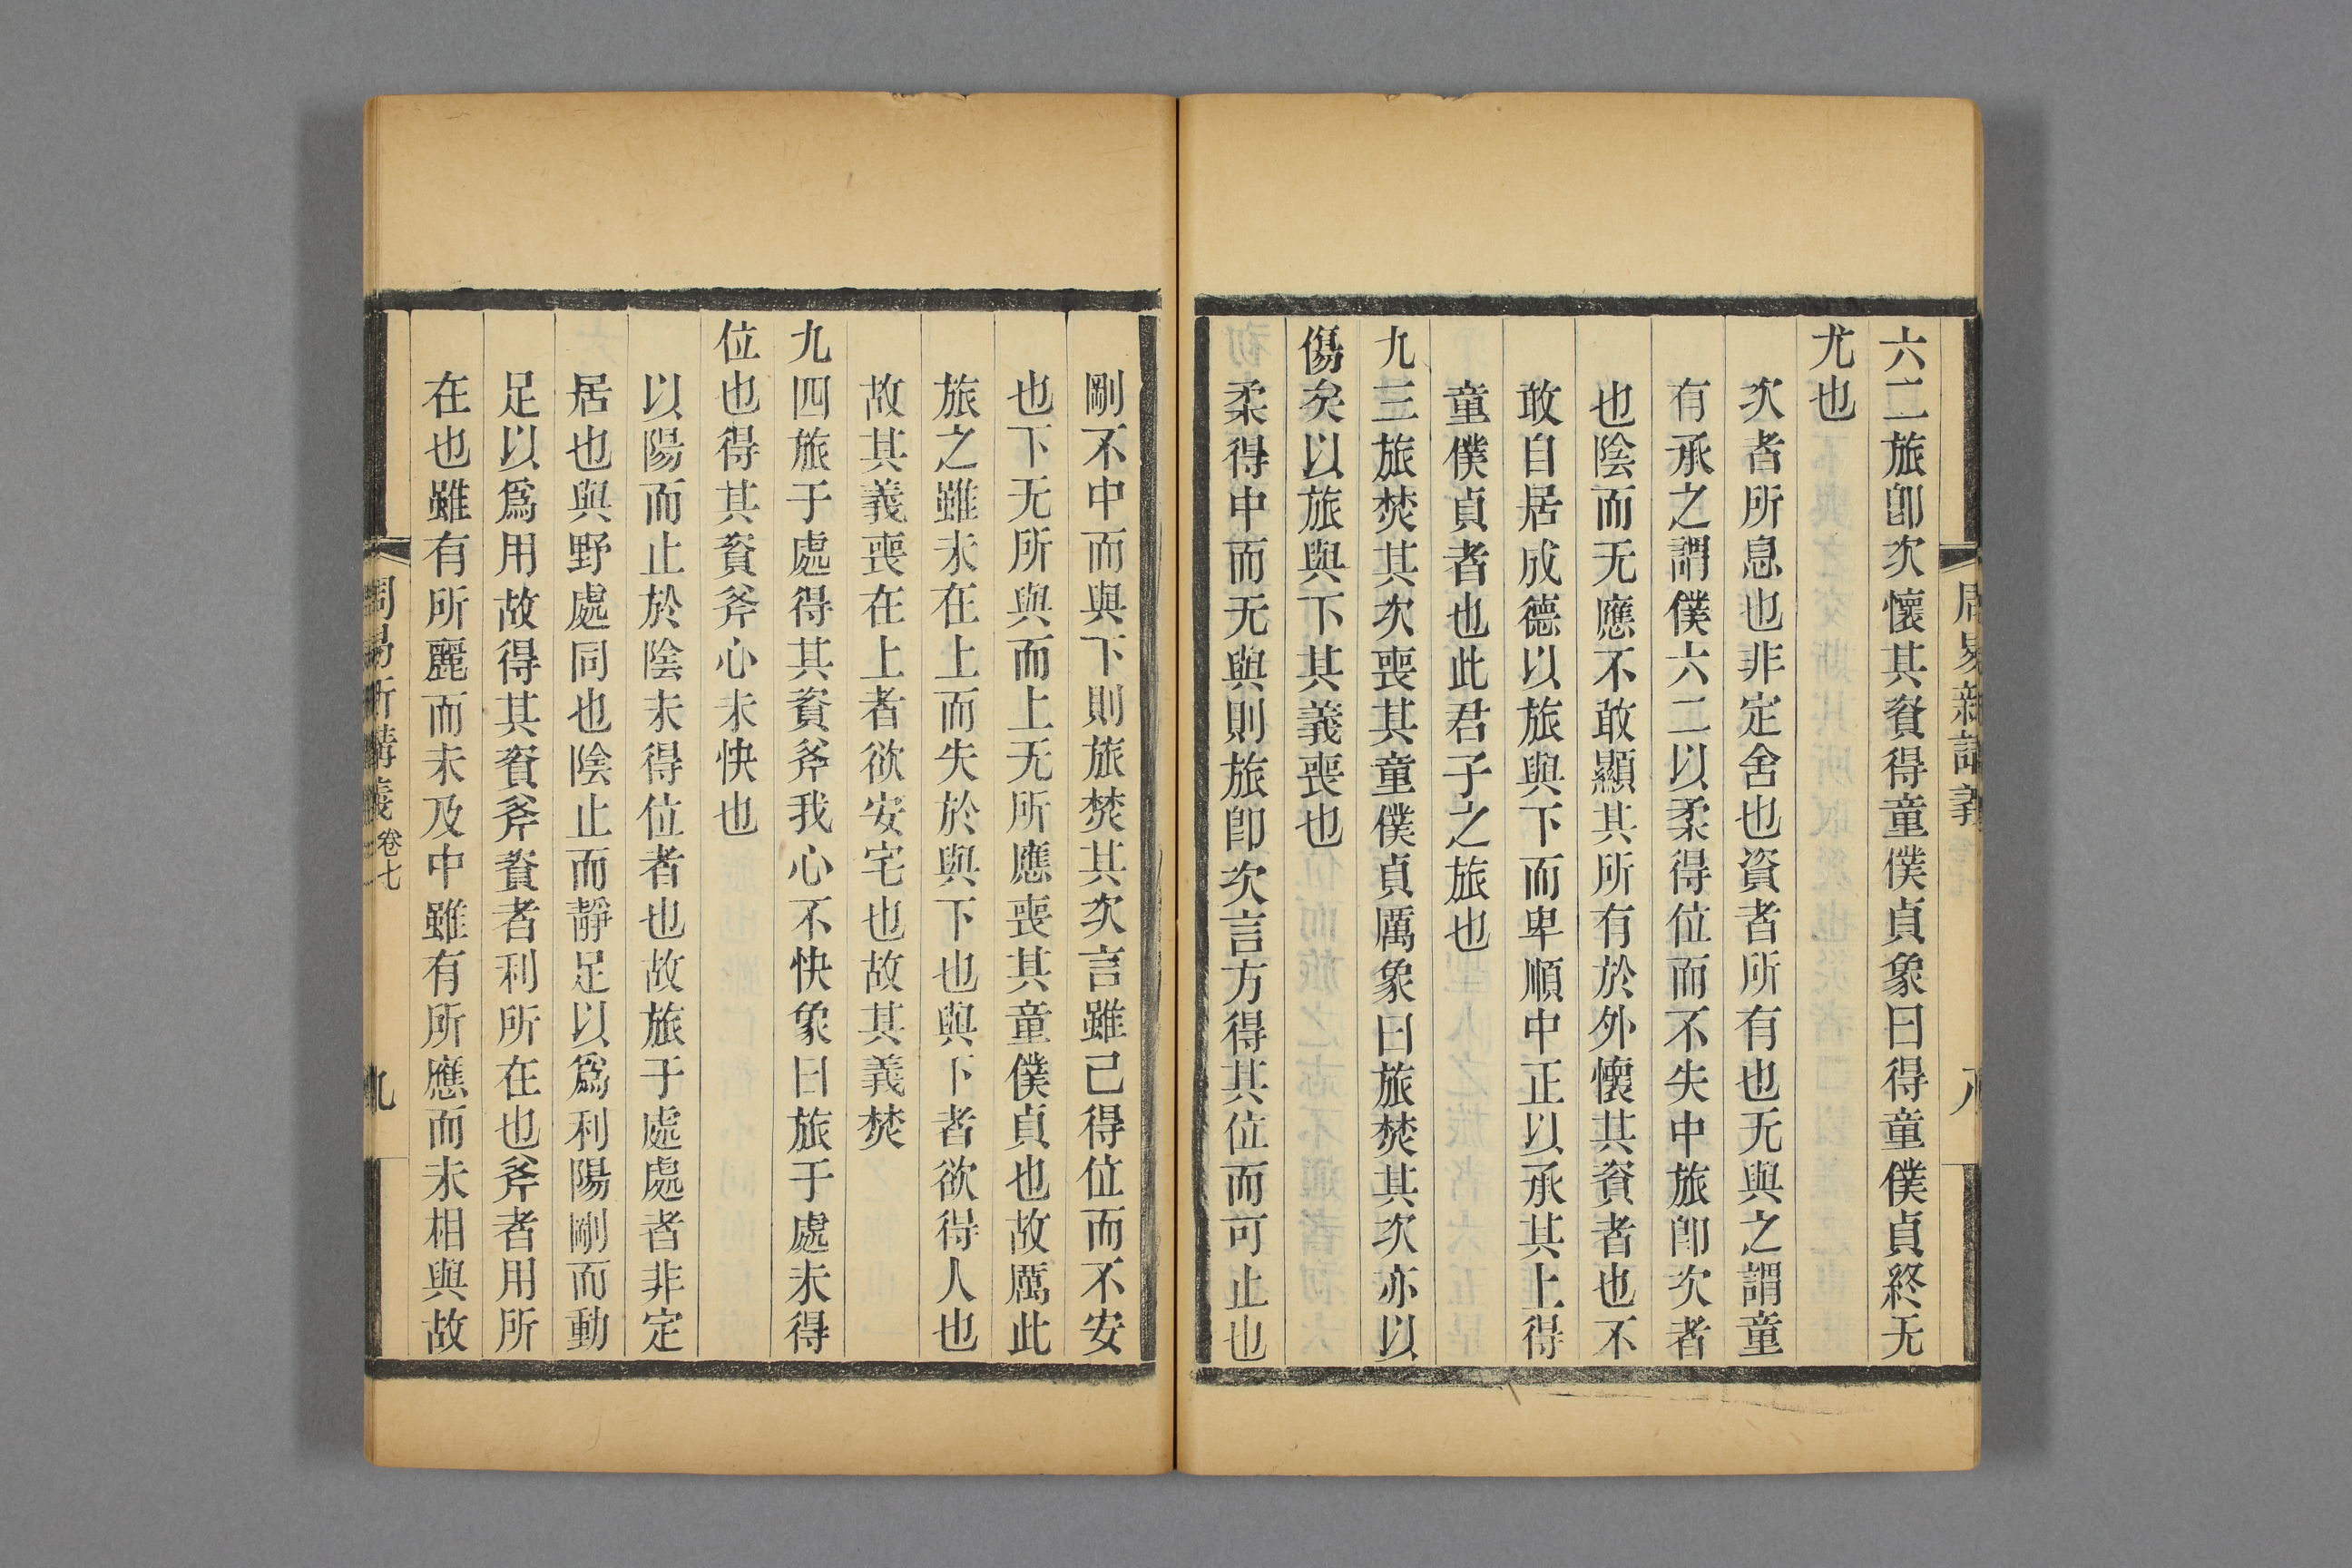 周易新講義
八
六二旅卽次懷其資得童僕貞象曰得童僕貞終无
尤也
次者所息也非定舍也資者所有也无與之謂童
有承之謂僕六二以柔得位而不失中旅卽次者
也陰而无應不敢顯其所有於外懷其資者也不
敢自居成德以旅與下而卑順中正以承其上得
童僕貞者也此君子之旅也
九三旅焚其次喪其童僕貞厲象曰旅焚其次亦以
傷矣以旅與下其義喪也
柔得中而无與則旅卽次言方得其位而可止也
剛不中而與下則旅焚其次言雖己得位而不安
也下无所與而上无所應喪其童僕貞也故厲此
旅之雖未在上而失於與下也與下者欲得人也
故其義喪在上者欲安宅也故其義焚
九四旅于處得其資斧我心不快象曰旅于處未得
位也得其資斧心未快也
以陽而止於陰未得位者也故旅于處處者非定
居也與野處同也陰止而靜足以爲利陽剛而動
足以爲用故得其資斧資者利所在也斧者用所
在也雖有所麗而未及中雖有所應而未相與故
周易新講義 卷七
九